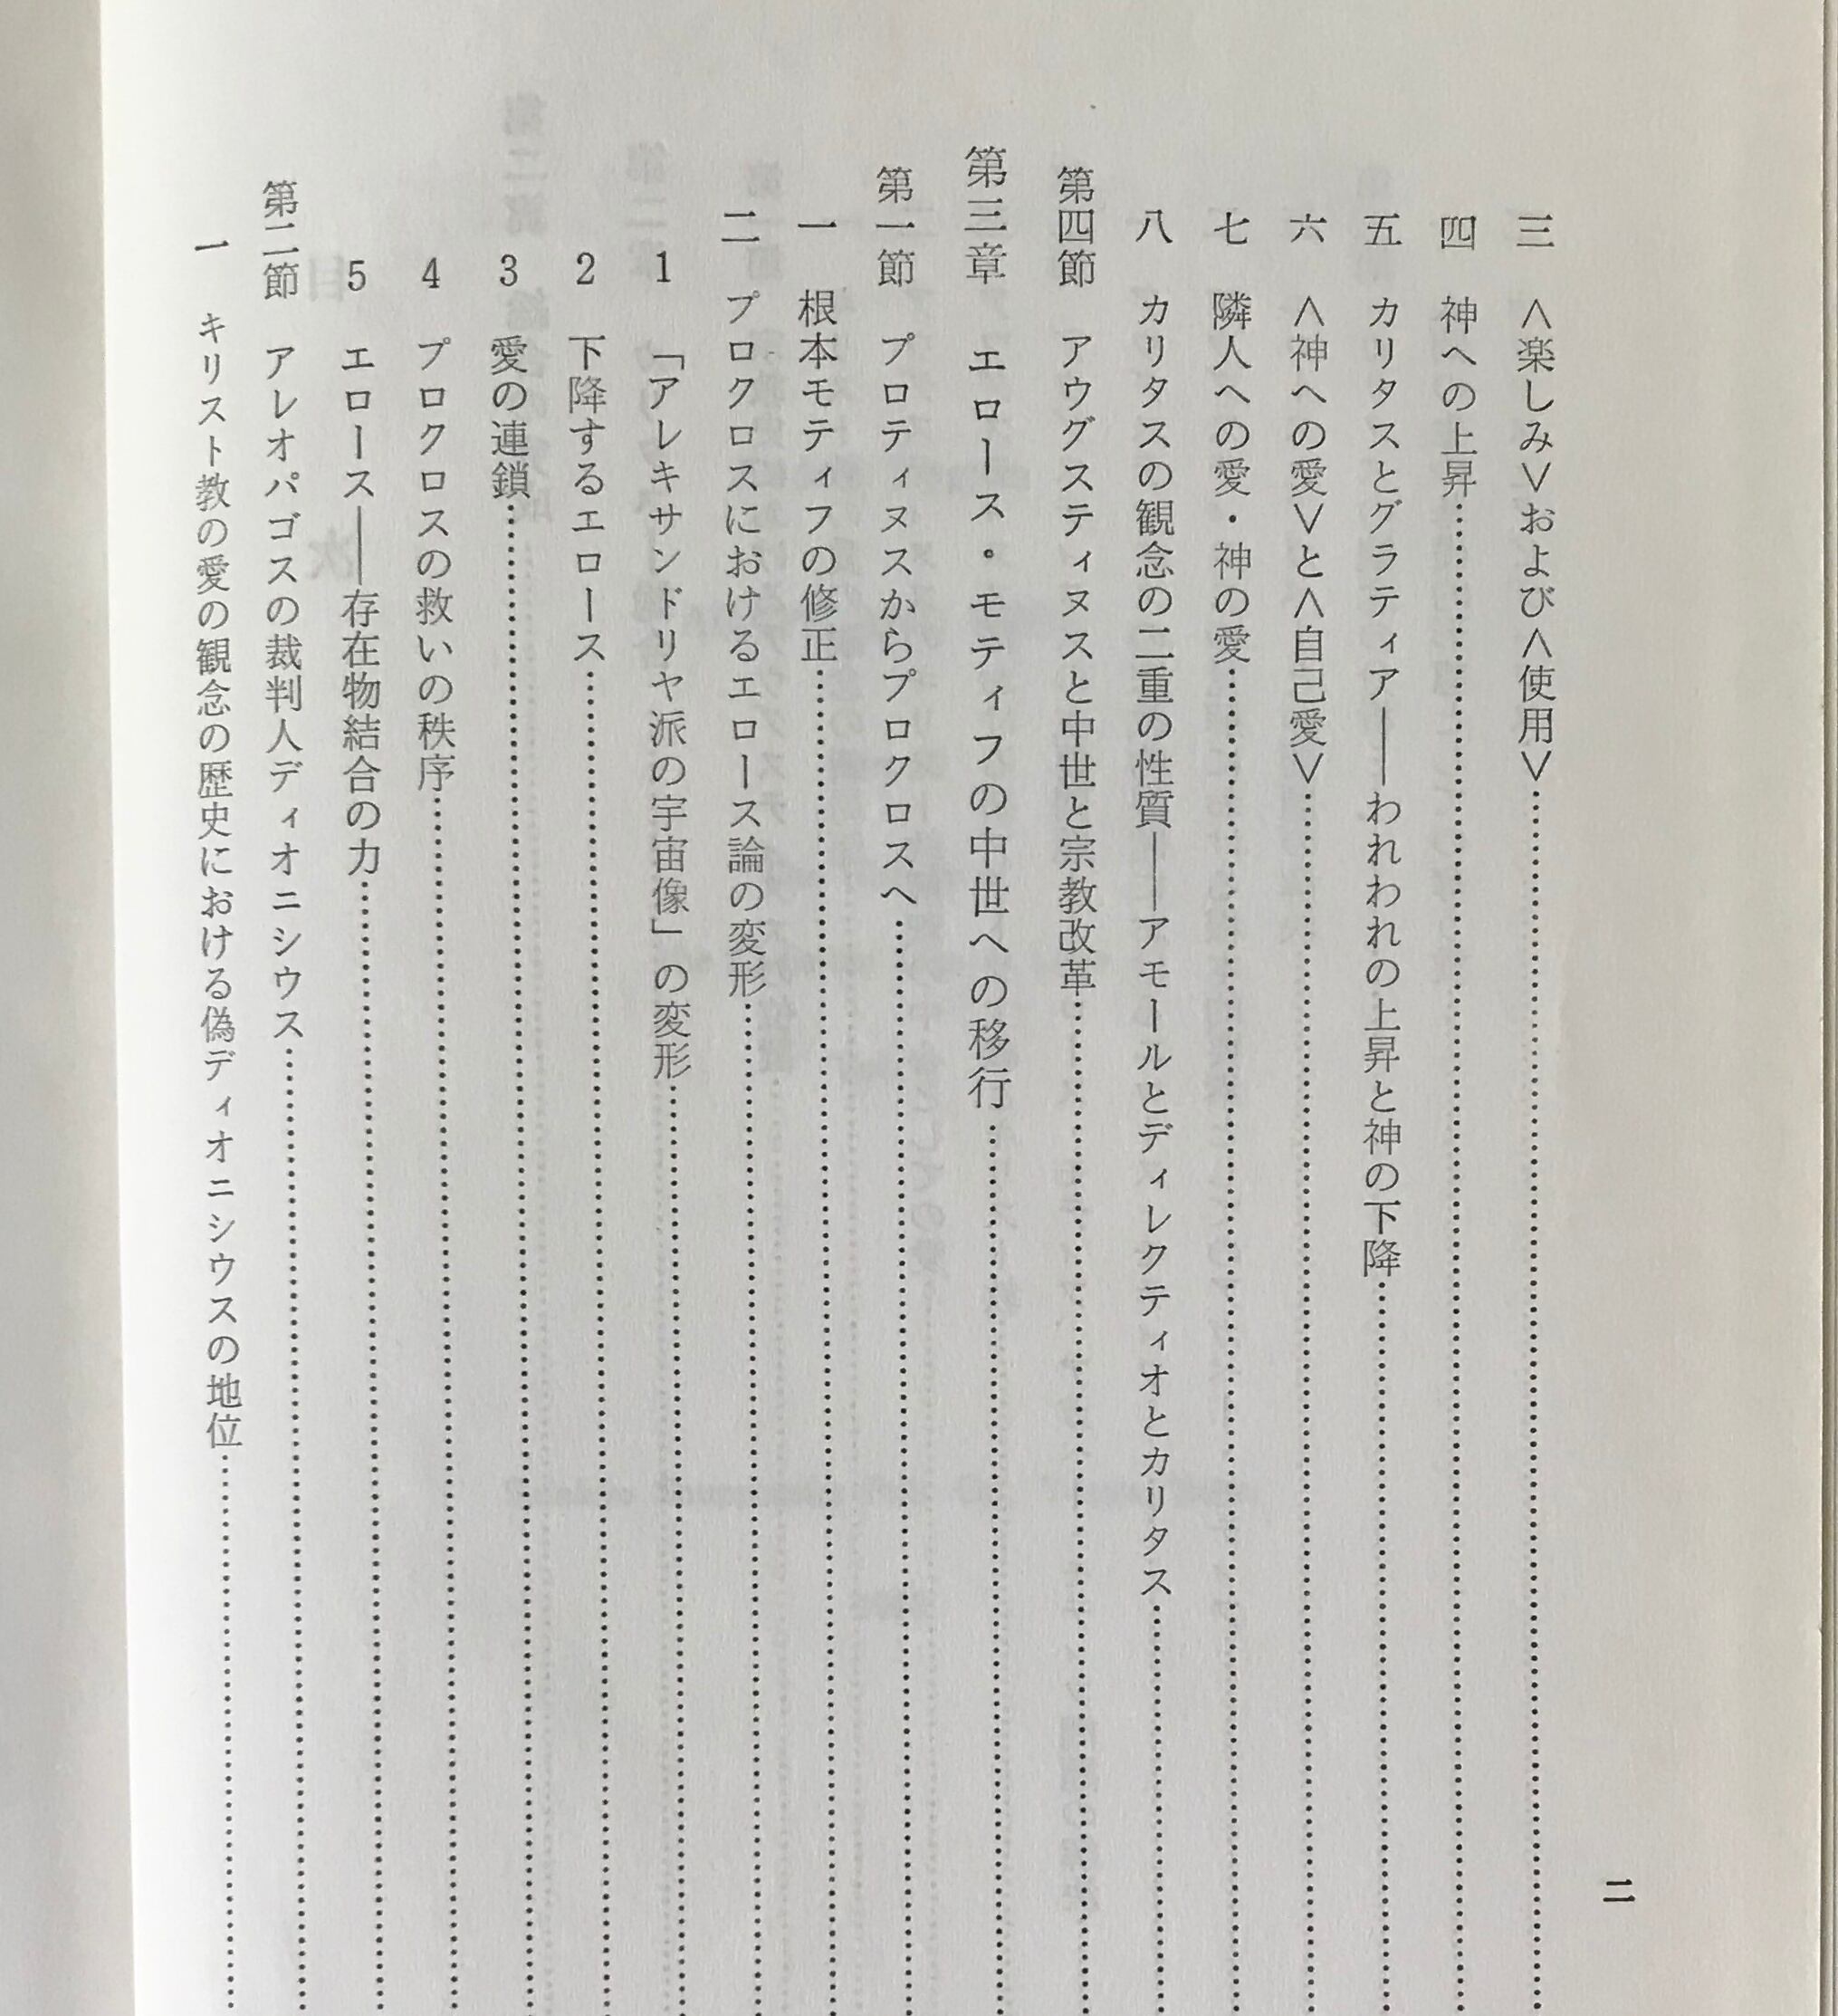 三　＜楽しみ＞および＜使用＞
四　神への上昇
五　カリタスとグラティア――われわれの上昇と神の下降
六　＜神への愛＞と＜自己愛＞
七　隣人への愛・神の愛
八　カリタスの観念の二重の性質――アモールとディレクティオとカリタス
第四節　アウグスティヌスと中世と宗教改革
第三章　エロース・モティフの中世への移行
第一節　プロティヌスからプロクロスへ
一　根本モティフの修正
二　プロクロスにおけるエロース論の変形
1　「アレキサンドリヤ派の宇宙像」の変形
2　下降するエロース
3　愛の連鎖
4　プロクロスの救いの秩序
5　エロース――存在物結合の力
第二節　アレオパゴスの裁判人ディオニシウス
一　キリスト教の愛の観念の歴史における偽ディオニシウスの地位
二